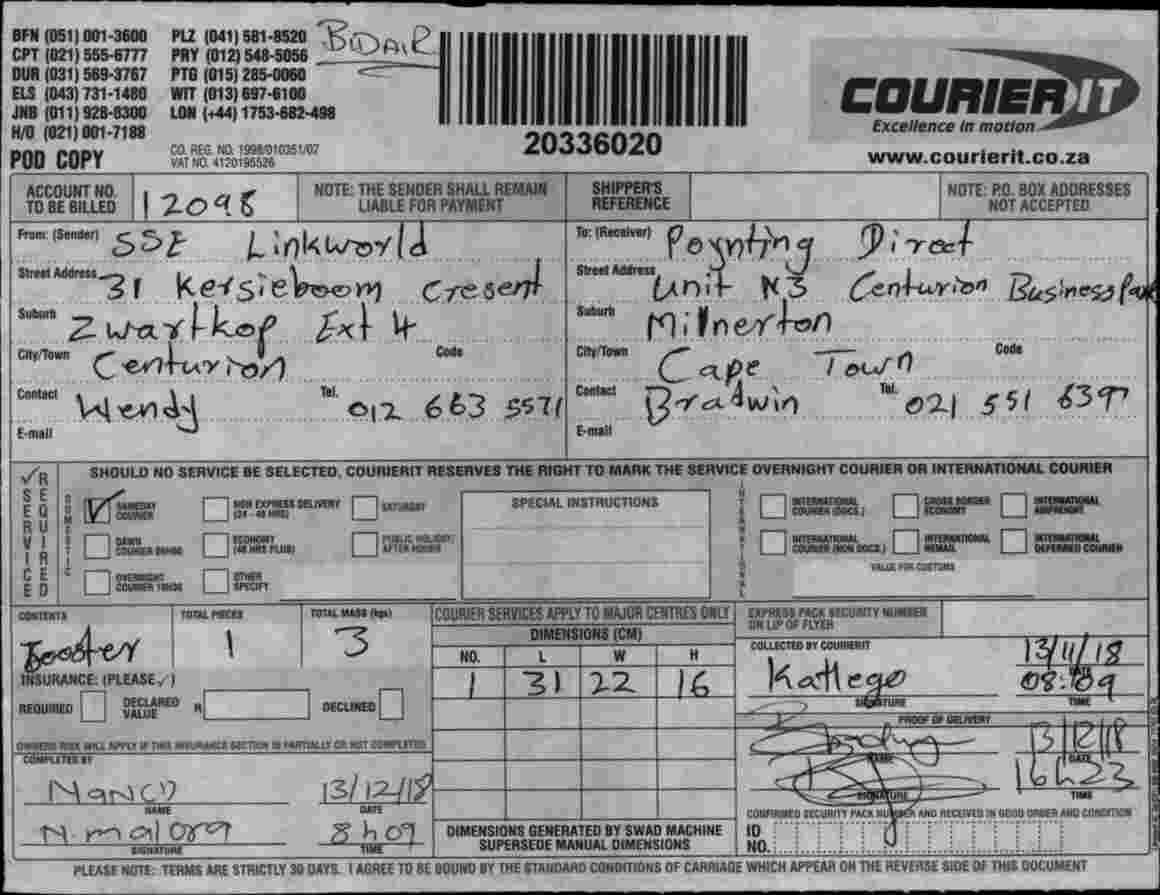 BFN (051) 001-3600 PLZ (041) 581-8520
CPT (021) 555-6777 PRY (012) 548-5056
DUR (031) 569-3767 PTG (015) 285-0060
ELS (043) 731-1480 WIT (013) 697-6100
JNB (011) 928-0300 LON (+44) 1753-682-498
H/O (021) 001-7188
BIDAIR
POD COPY
CO. REG. NO. 1998/010351/07
VAT NO. 4120195526
20336020
COURIER IT
Excellence in motion
www.courierit.co.za
ACCOUNT NO. TO BE BILLED 12098
NOTE: THE SENDER SHALL REMAIN LIABLE FOR PAYMENT
SHIPPER'S REFERENCE
NOTE: P.O. BOX ADDRESSES NOT ACCEPTED
From: (Sender) SSE Linkworld
Street Address 31 Kersieboom Cresent
Suburb Zwartkop Ext 4
City/Town Centurion Code
Contact Wendy Tel. 012 663 5571
E-mail
To: (Receiver) Poynting Direct
Street Address Unit N3 Centurion Business Park
Suburb Milnerton
City/Town Cape Town Code
Contact Bradwin Tel. 021 551 6397
E-mail
SERVICE REQUIRED
SHOULD NO SERVICE BE SELECTED, COURIERIT RESERVES THE RIGHT TO MARK THE SERVICE OVERNIGHT COURIER OR INTERNATIONAL COURIER
DOMESTIC
SAMEDAY COURIER
NON EXPRESS DELIVERY (24 - 48 HRS)
SATURDAY
DAWN COURIER
ECONOMY (48 HRS PLUS)
PUBLIC HOLIDAY/ AFTER HOURS
OVERNIGHT COURIER
OTHER SPECIFY
SPECIAL INSTRUCTIONS
INTERNATIONAL
INTERNATIONAL COURIER (DOCS.)
CROSS BORDER ECONOMY
INTERNATIONAL AIRFREIGHT
INTERNATIONAL COURIER (NON DOCS.)
INTERNATIONAL
INTERNATIONAL DEFERRED COURIER
VALUE FOR CUSTOMS
CONTENTS
Booster
TOTAL PIECES
1
TOTAL MASS (kgs)
3
INSURANCE: (PLEASE ✓)
REQUIRED DECLARED VALUE R DECLINED
OWNERS RISK WILL APPLY IF THIS INSURANCE SECTION IS PARTIALLY OR NOT COMPLETED
COMPLETED BY
Nancy 13/12/18
NAME DATE
8h09
SIGNATURE TIME
COURIER SERVICES APPLY TO MAJOR CENTRES ONLY
DIMENSIONS (CM)
NO. L W H
1 31 22 16
DIMENSIONS GENERATED BY SWAD MACHINE
SUPERSEDE MANUAL DIMENSIONS
EXPRESS PACK SECURITY NUMBER
ON LIP OF FLYER
COLLECTED BY COURIERIT
Katlego 13/11/18
DATE
08:09
SIGNATURE TIME
PROOF OF DELIVERY
13/12/18
NAME DATE
16h23
SIGNATURE TIME
CONFIRMED SECURITY PACK NUMBER AND RECEIVED IN GOOD ORDER AND CONDITION
ID NO.
PLEASE NOTE: TERMS ARE STRICTLY 30 DAYS. I AGREE TO BE BOUND BY THE STANDARD CONDITIONS OF CARRIAGE WHICH APPEAR ON THE REVERSE SIDE OF THIS DOCUMENT